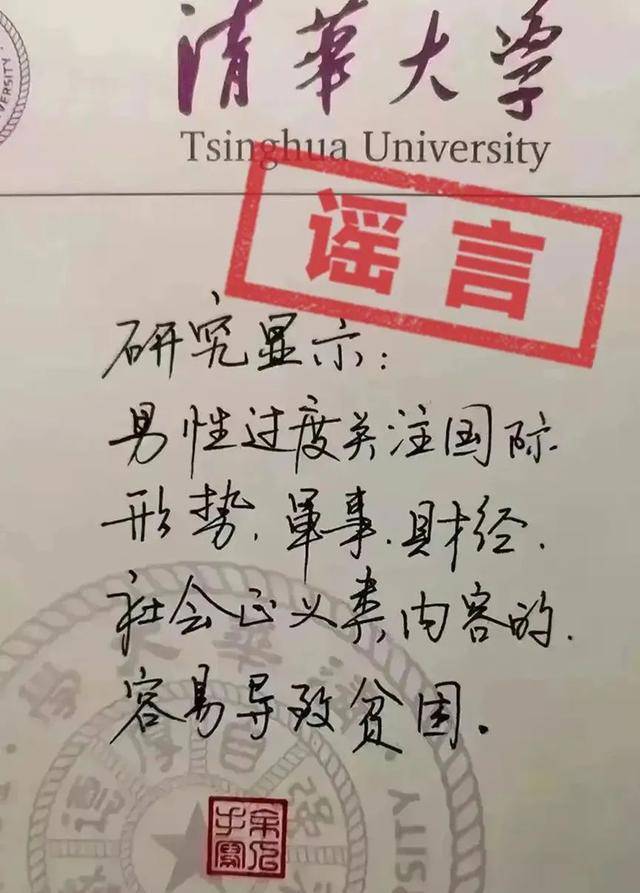 ERSITY
清華大学
Tsinghua University
谣言
研究显示：
男性过度关注国际
形势、軍事、财经、
社会正义类内容的、
容易导致贫困。